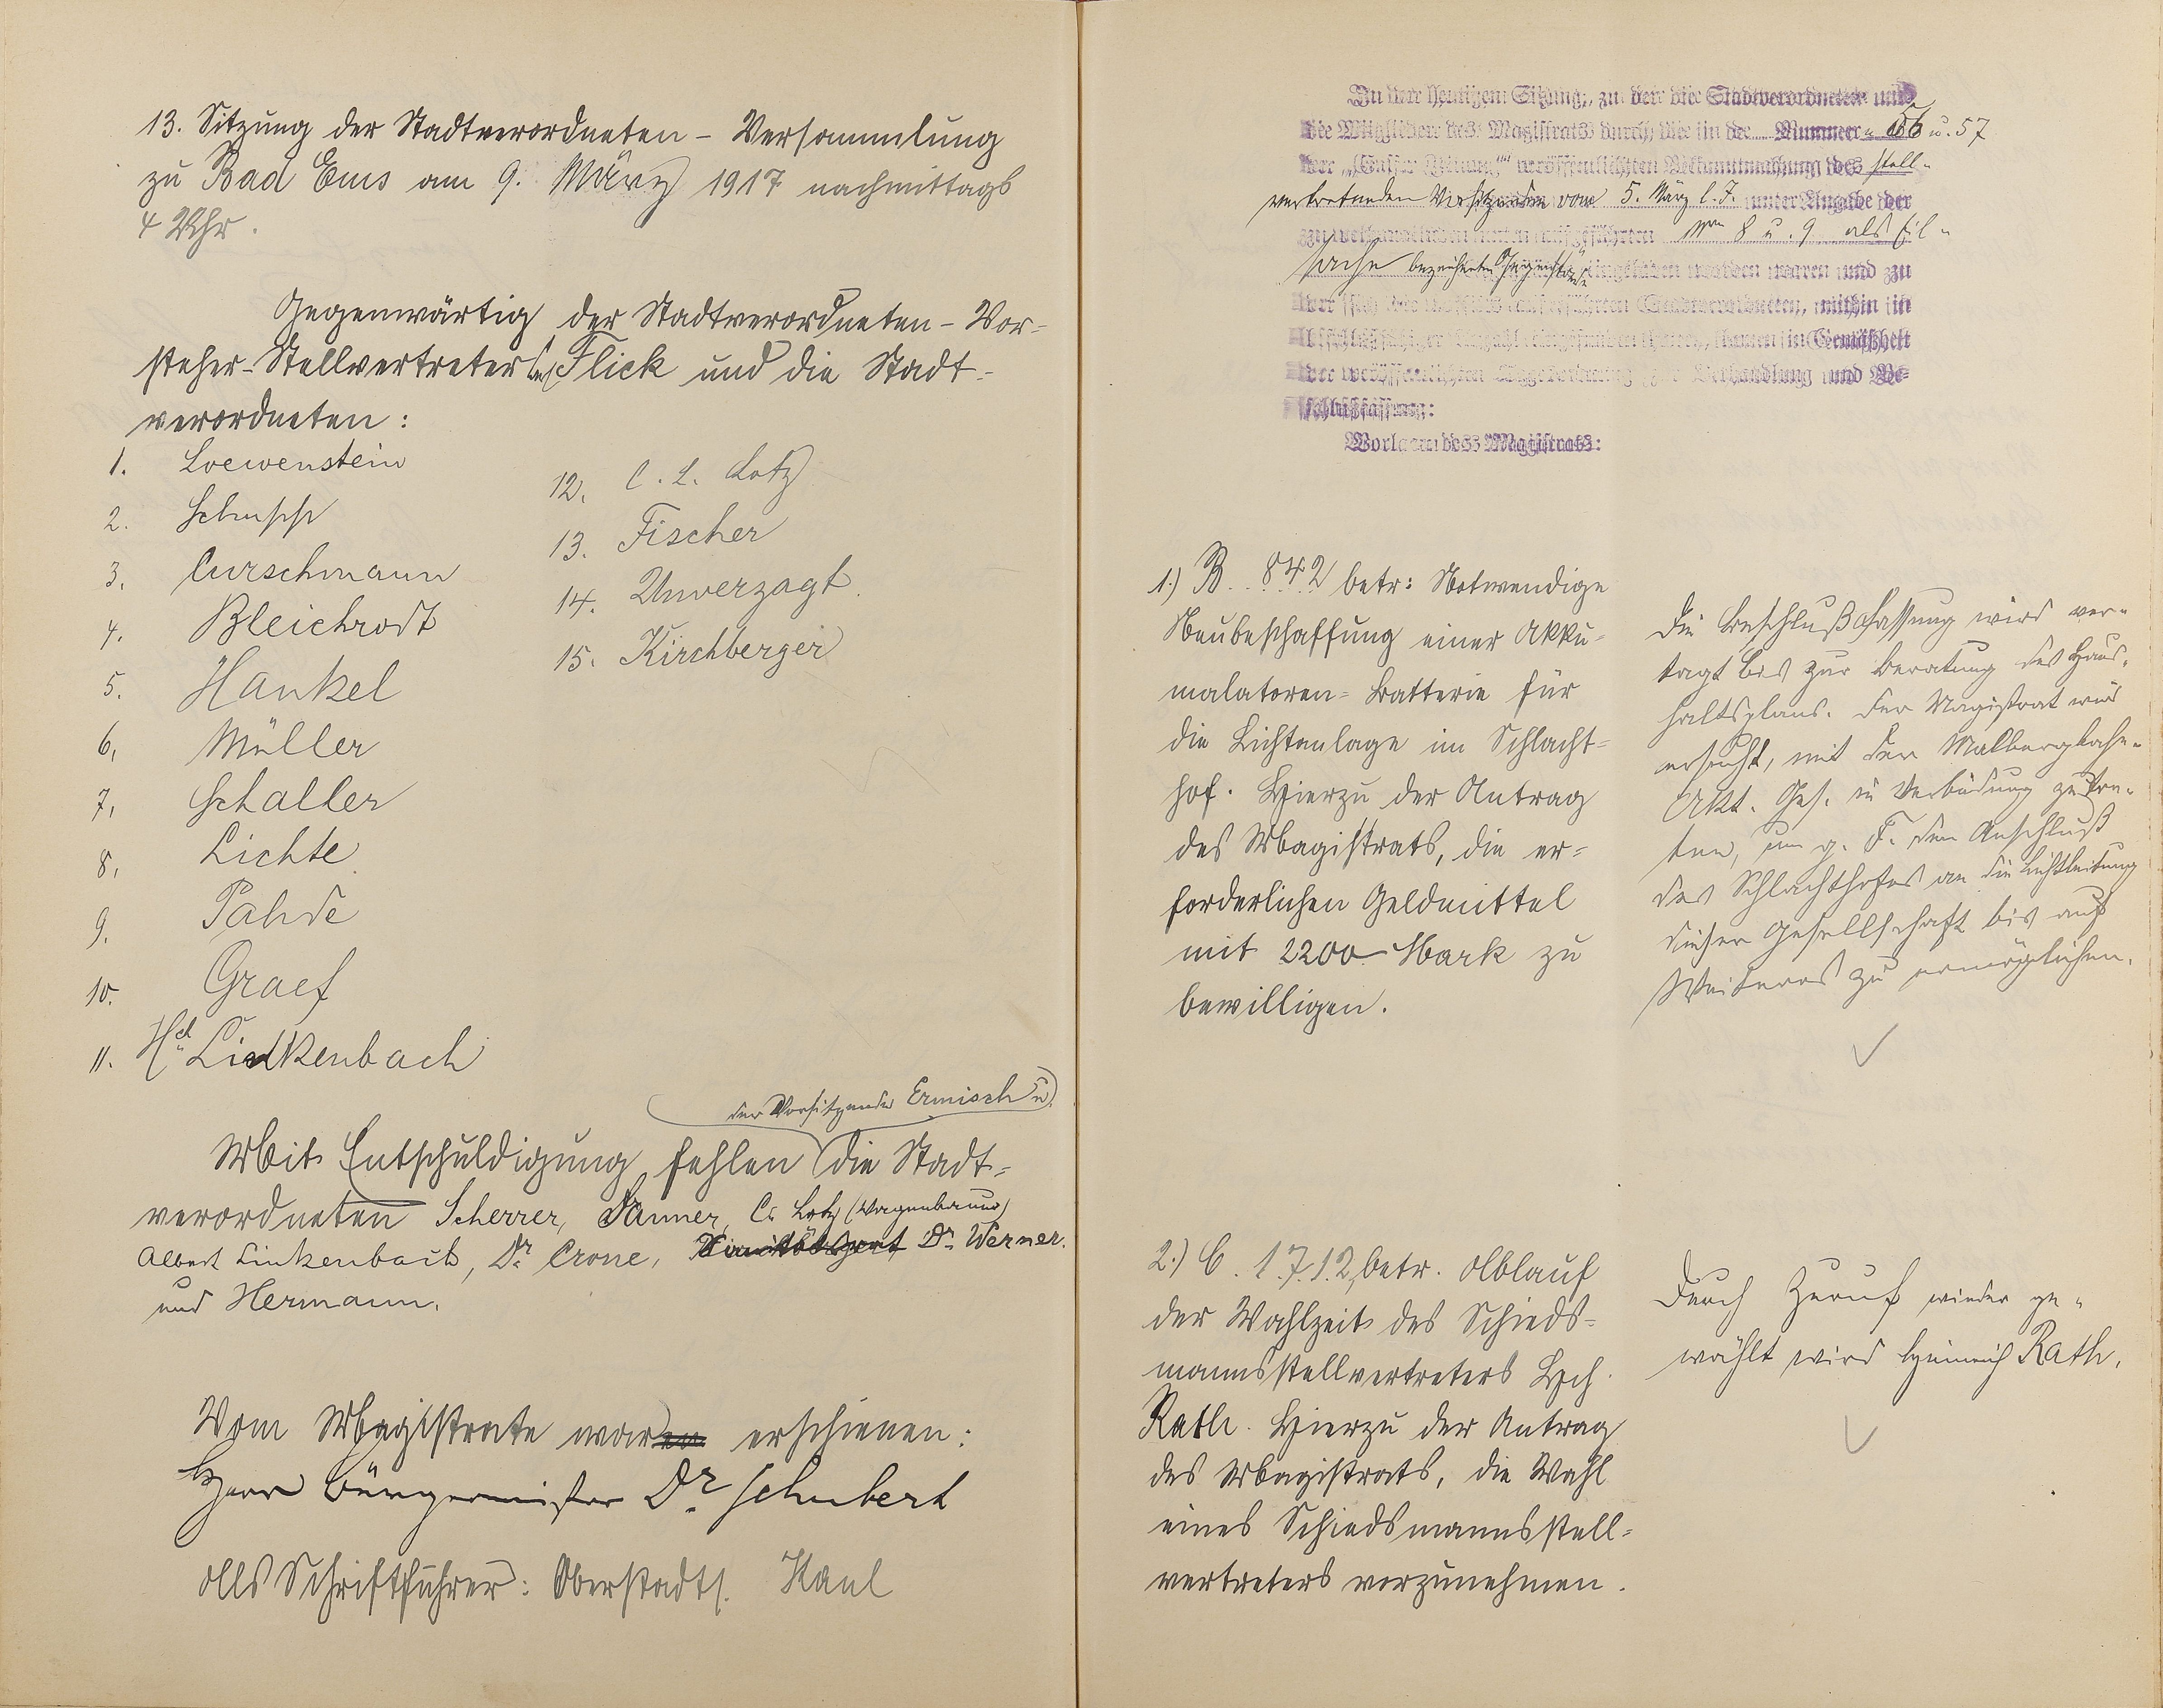 13. Sitzung der Stadtverordneten - Versammlung
zu Bad Ems am 9. März 1917 nachmittags
4 Uhr.
Gegenwärtig der Stadtverordneten-Vor-
steher-Stellvertreter Flick und die Stadt-
verordneten:
1. Loewenstein
2. Schupp
3. Curschmann
4. Bleichrodt
5. Hankel
6. Müller
7. Schaller
8. Lichte
9. Pahde
10. Graef
11. Hch Linkenbach
12. C. L. Lotz
13. Fischer
14. Unverzagt.
15. Kirchberger
der Vorsitzende Ermisch u.
Mit Entschuldigung fehlen die Stadt-
verordneten Scherrer, Sanner, C. Lotz (Wagenbauer)
Albert Linkenbach, Dr. Crone, Dr. Werner.
und Hermann.
Vom Magistrate waren erschienen:
Herr Bürgermeister Dr. Schubert
Als Schriftführer: Oberstadts. Kaul
In der heutigen Sitzung, zu der die Stadtverordneten und
die Mitglieder des Magistrats durch die in der Nummer 56 u. 57
der "Emser Zeitung" veröffentlichten Bekanntmachung des stell-
vertretenden Vorsitzenden vom 5. März l. J. unter Angabe der
zu verhandelnden unten aufgeführten 8 u. 9 als Eil-
sache bezeichneten Gegenstände eingeladen worden waren und zu
der sich die aufgeführten Stadtverordneten, mithin in
beschlußfähiger Anzahl eingefunden hatten, kamen in Gemäßheit
der veröffentlichten Tagesordnung zur Verhandlung und Be-
schlußfassung:
Vorlagen des Magistrats:
1.) B. 842 betr: Notwendige
Neubeschaffung einer Akku-
malatoren-Batterie für
die Lichtanlage im Schlacht-
hof. Hierzu der Antrag
des Magistrats, die er-
forderlichen Geldmittel
mit 2200 Mark zu
bewilligen.
Die Beschlußfassung wird ver-
tagt bis zur Beratung des Haus-
haltsplans. Der Magistrat wird
ersucht, mit der Malbergbahn-
Akt. Ges. in Verbindung zu tre-
ten, um g. F. den Anschluß
des Schlachthofes an die Lichtleitung
dieser Gesellschaft bis auf
Weiteres zu ermöglichen.
2.) C. 1712, betr. Ablauf
der Wahlzeit des Schieds-
mannsstellvertreters Hch.
Rath. Hierzu der Antrag
des Magistrats, die Wahl
eines Schiedsmannsstell-
vertreters vorzunehmen.
Durch Zuruf wieder ge-
wählt wird Heinrich Rath.